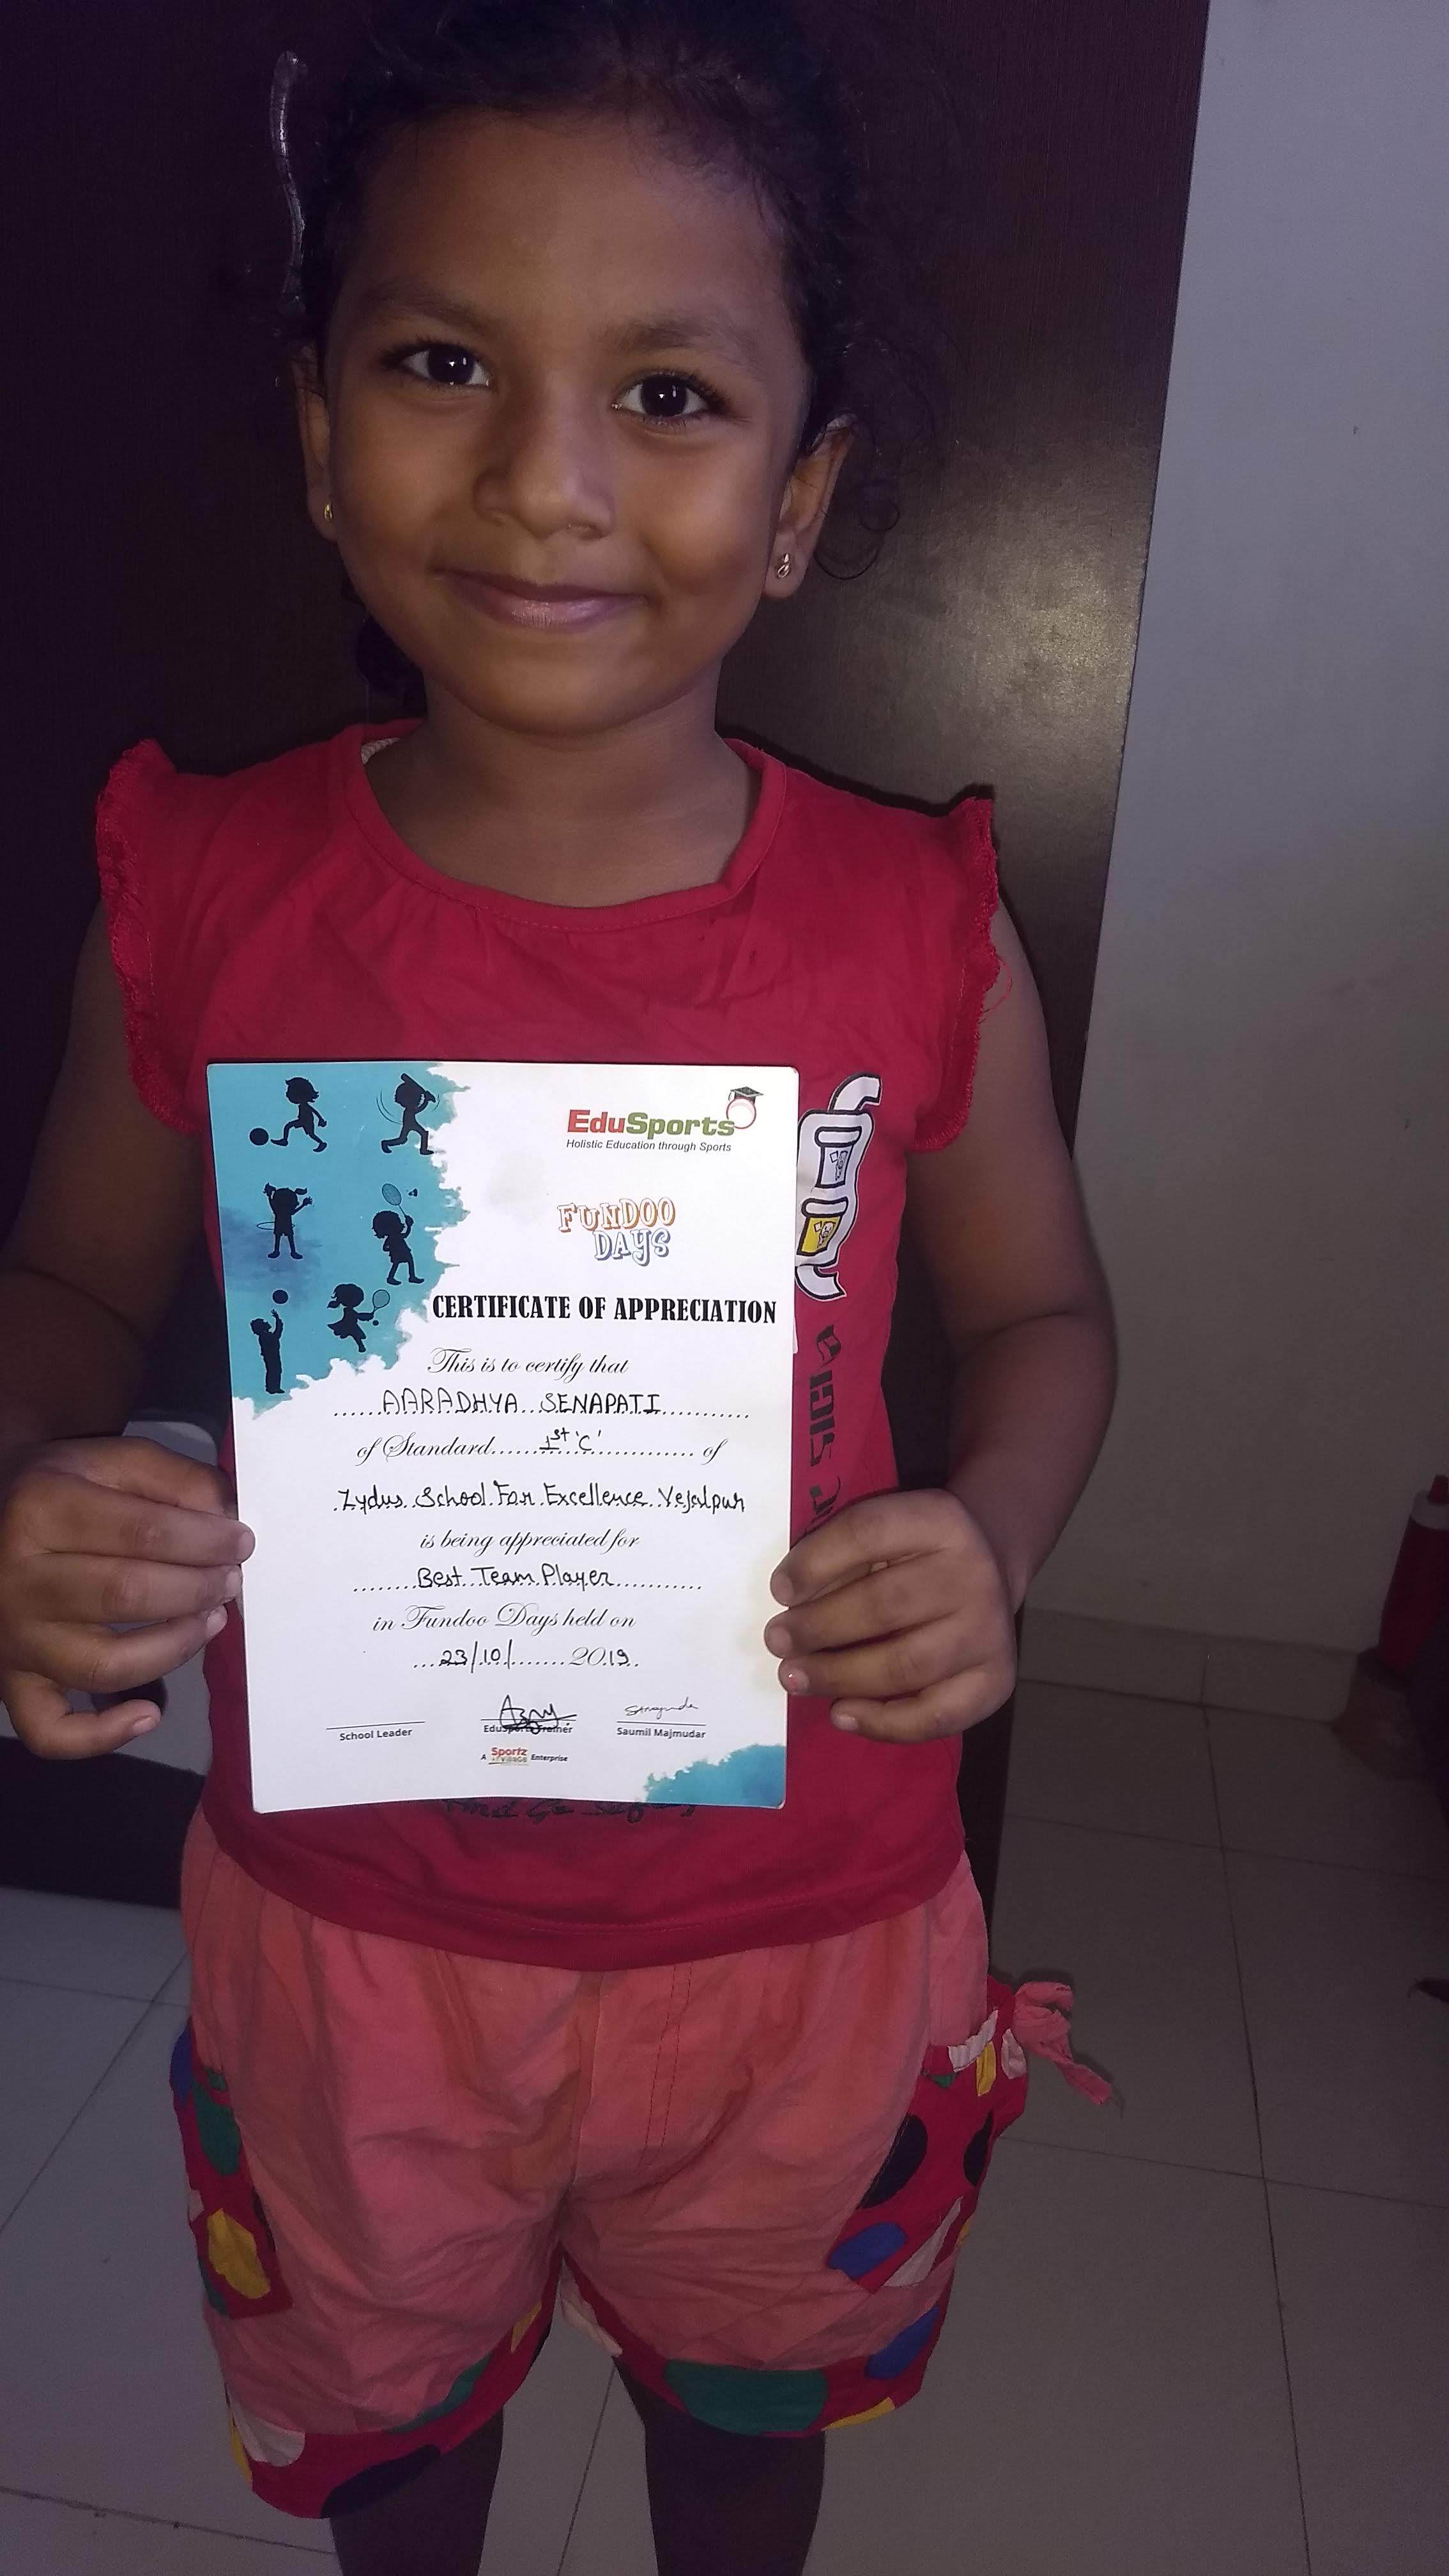 EduSports
Holistic Education through Sports
FUNDOO
DAYS
CERTIFICATE OF APPRECIATION
This is to certify that
......AARADHYA...SENAPATI............
of Standard.......1st 'C'................ of
.Zydus..School.For.Excellence..Vejalpur
is being appreciated for
........Best..Team.Player............
in Fundoo Days held on
....23/10/........2019..
School Leader
EduSports Trainer
Saumil Majmudar
A Sportz Village Enterprise